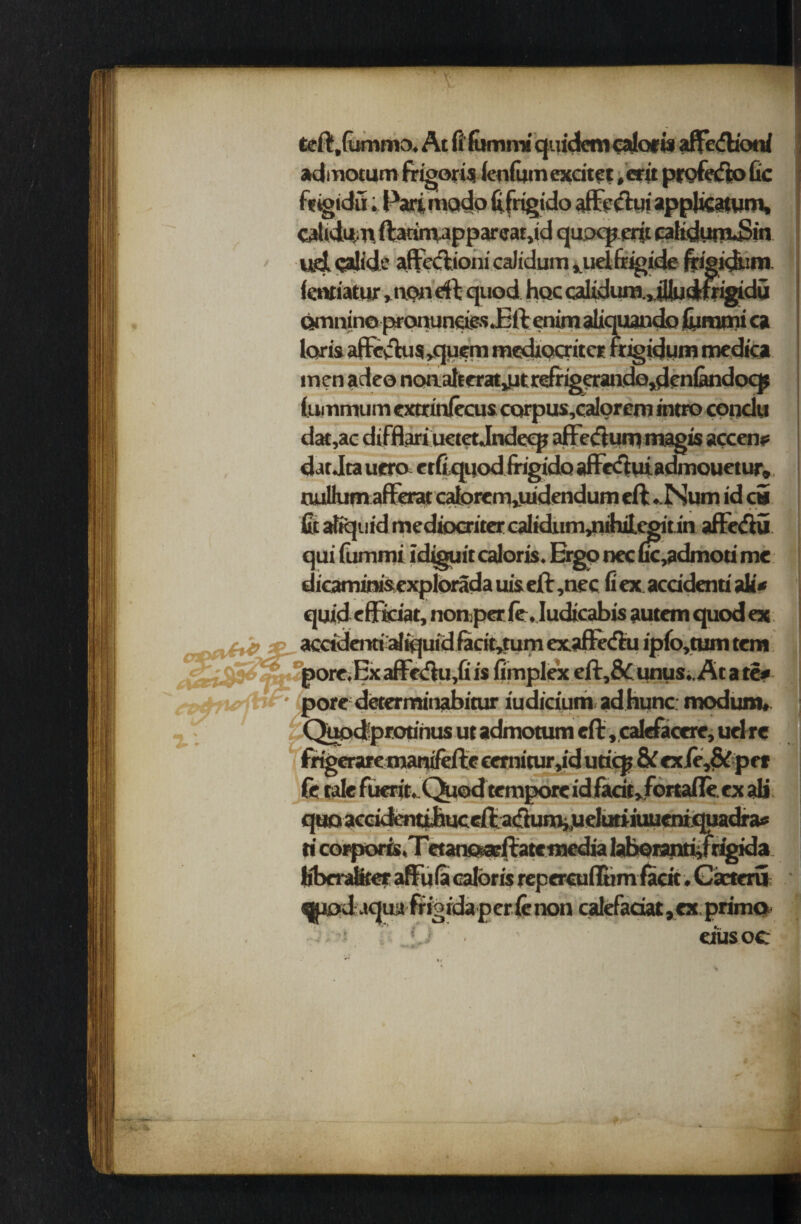 teſt, ſummo. At ſi ſummi quidem caloris affectioni
admotum frigoris ſenſum excitet, erit profecto ſic
frigidū. Pari modo ſi frigido affectui applicatum,
calidum ſtatim appareat, id quoqꝫ erit calidum. Sin
uel calide affectioni calidum, uel frigide frigidum
ſentiatur, non eſt quod hoc calidum, illud frigidū
omnino pronuncies. Eſt enim aliquando ſummi ca
loris affectus, quem mediocriter frigidum medica
men adeo non alterat, ut refrigerando, denſandoqꝫ
ſummum extrinſecus corpus, calorem intro conclu
dat, ac difflari uetet. Indeqꝫ affectum magis accen⸗
dat. Ita uero etſi quod frigido affectui admouetur,
nullum afferat calorem, uidendum eſt. Num id cū
ſit aliquid mediocriter calidum, nihil egit in affectū
qui ſummi idiguit caloris. Ergo nec ſic, admoti me
dicaminis explorāda uis eſt, nec ſi ex accidenti ali⸗
quid efficiat, non per ſe. Iudicabis autem quod ex
accidenti aliquid facit, tum ex affectu ipſo, tum tem
pore. Ex affectu, ſi is ſimplex eſt, & unus. At a tē⸗
pore determinabitur iudicium ad hunc modum.
Quod protinus ut admotum eſt, calefacere, uel re
frigerare manifeſte cernitur, id utiqꝫ & ex ſe, & per
ſe tale fuerit. Quod tempore id facit, fortaſſe ex ali
quo accidenti. huc eſt actum, ueluti iuueni quadra⸗
ti corporis. Tetano, æſtate media laboranti, frigida
liberaliter affuſa caloris repercuſſum facit. Cæterū
quod aqua frigida per ſe non calefaciat, ex primo
eius oc